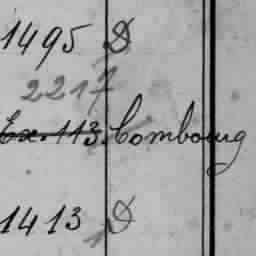 1495 D
2217
Ex. 113. Combourg
1413 D